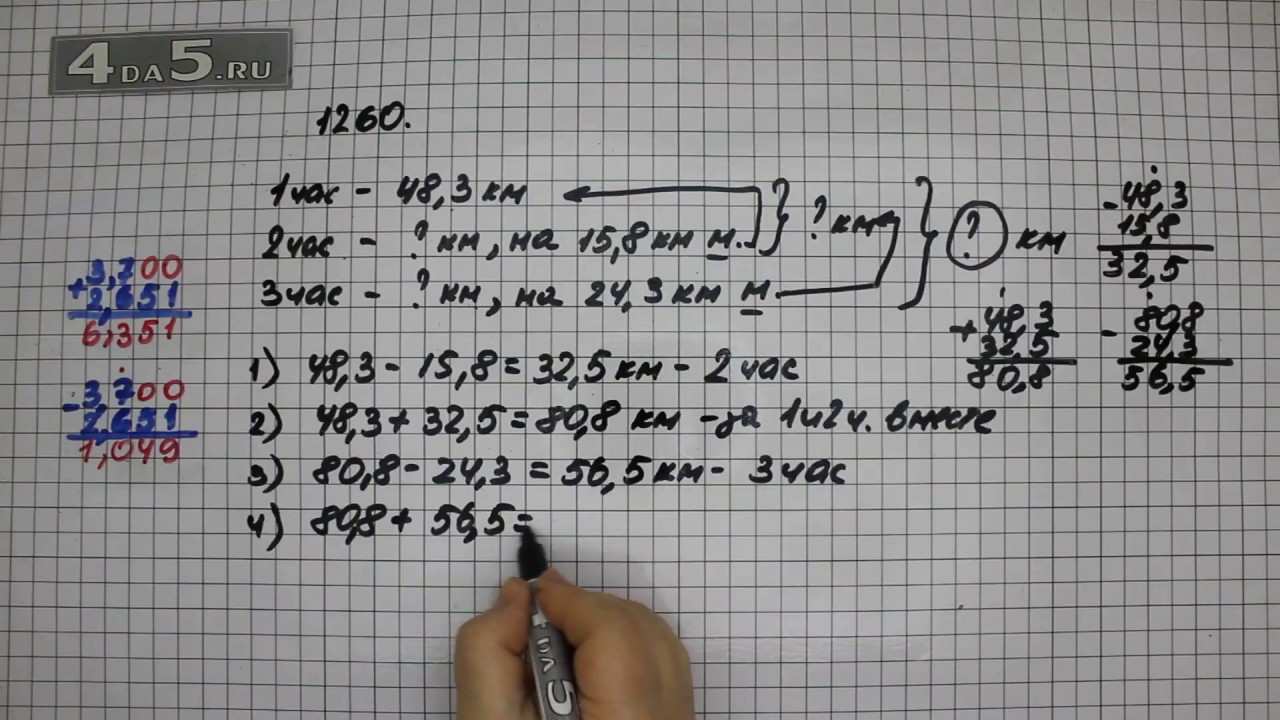 4DA5.RU
1260.
1 час - 48,3 км
2 час - ? км, на 15,8 км м. } ? км
3 час - ? км, на 24,3 км м } ? км
1) 48,3 - 15,8 = 32,5 км - 2 час
2) 48,3 + 32,5 = 80,8 км - за 1 и 2 ч. вместе
3) 80,8 - 24,3 = 56,5 км - 3 час
4) 80,8 + 56,5 =
+ 3,700
2,651
6,351
- 3,700
2,651
1,049
- 48,3
15,8
32,5
+ 48,3
32,5
80,8
- 80,8
24,3
56,5
4DA5